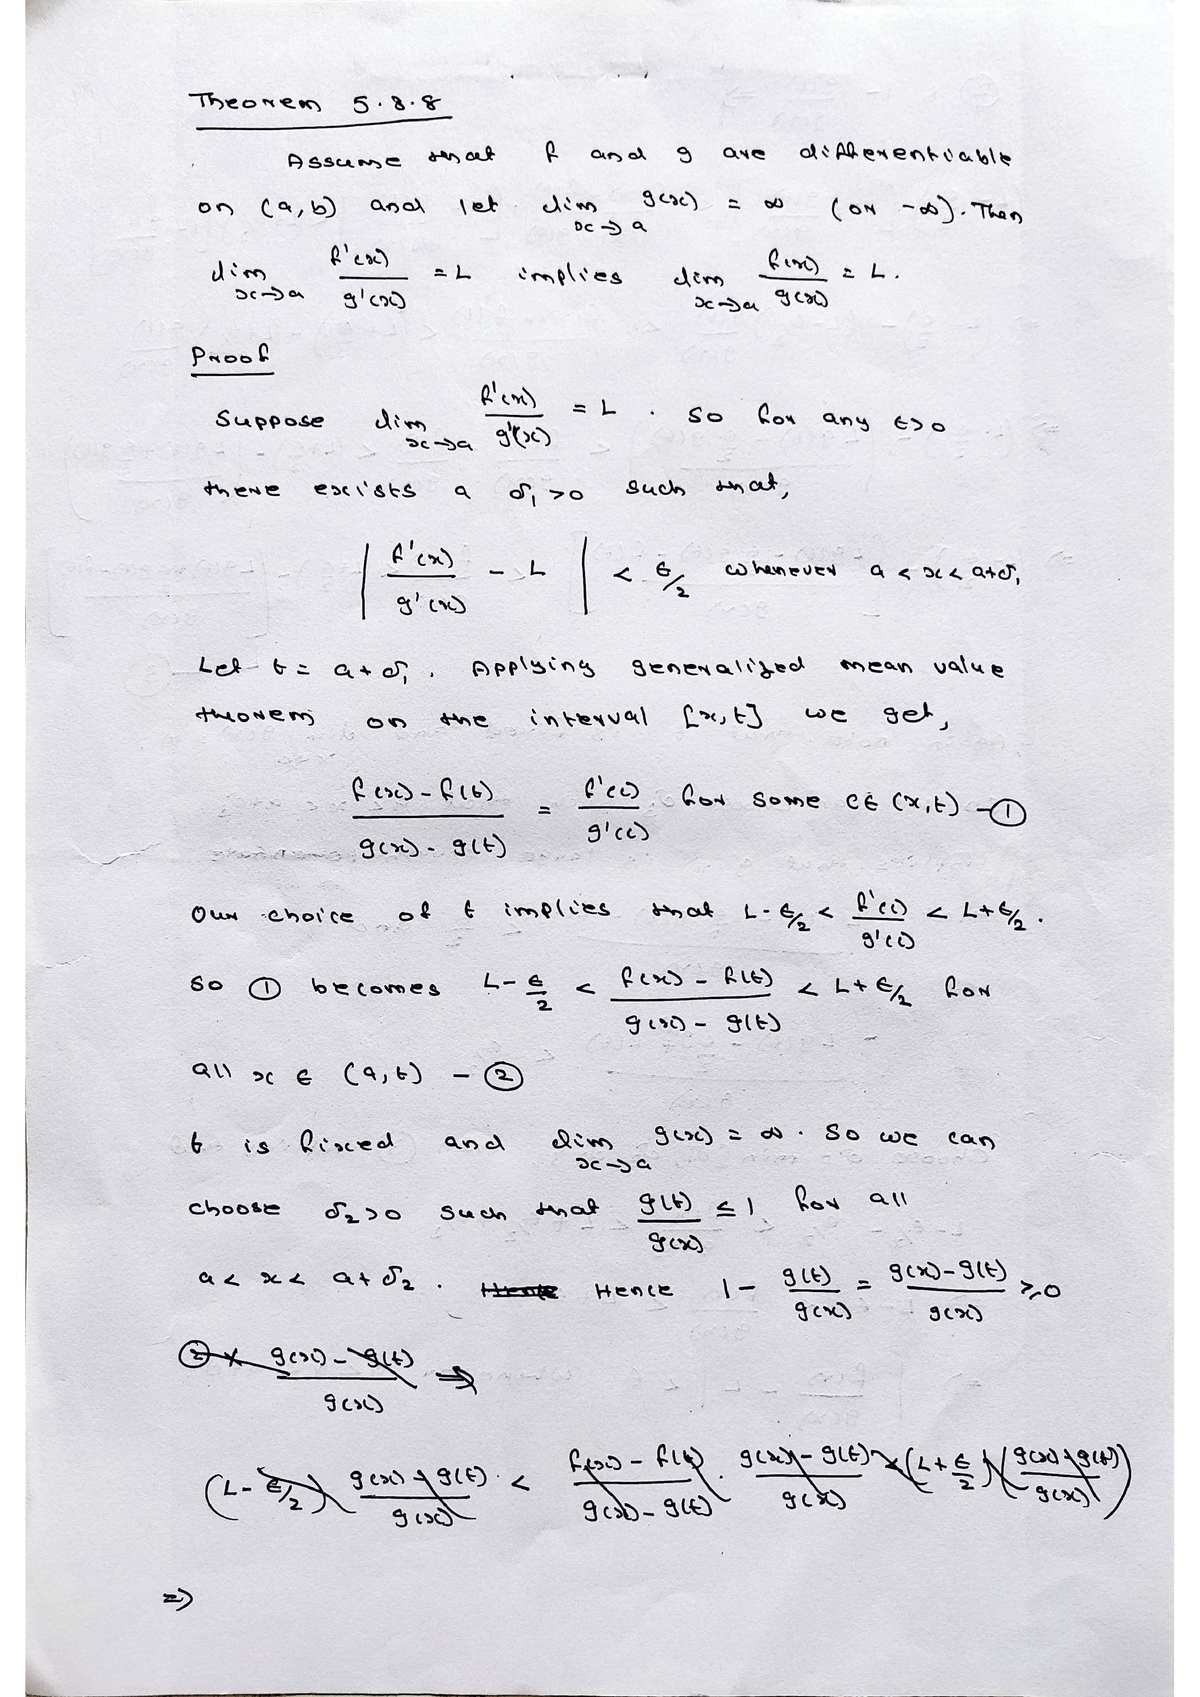 Theorem 5.3.8
Assume that f and g are differentiable
on (a,b) and let lim x→a g(x) = ∞ (or -∞). Then
lim x→a f'(x)/g'(x) = L implies lim x→a f(x)/g(x) = L.
Proof
Suppose lim x→a f'(x)/g'(x) = L. So for any ε>0
there exists a δ₁>0 such that,
| f'(x)/g'(x) - L | < ε/2 whenever a < x < a+δ₁
Let t = a+δ₁. Applying generalized mean value
theorem on the interval [x,t] we get,
(f(x)-f(t))/(g(x)-g(t)) = f'(c)/g'(c) for some c∈(x,t) - ①
Our choice of t implies that L-ε/2 < f'(c)/g'(c) < L+ε/2.
So ① becomes L-ε/2 < (f(x)-f(t))/(g(x)-g(t)) < L+ε/2 for
all x ∈ (a,t) - ②
t is fixed and lim x→a g(x) = ∞. So we can
choose δ₂>0 such that g(t)/g(x) ≤ 1 for all
a < x < a+δ₂. Hence Hence 1 - g(t)/g(x) = (g(x)-g(t))/g(x) ≥ 0
② × (g(x)-g(t))/g(x) ⇒
(L-ε/2) (g(x)-g(t))/g(x) < (f(x)-f(t))/(g(x)-g(t)) · (g(x)-g(t))/g(x) < (L+ε/2)((g(x)-g(t))/g(x))
⇒